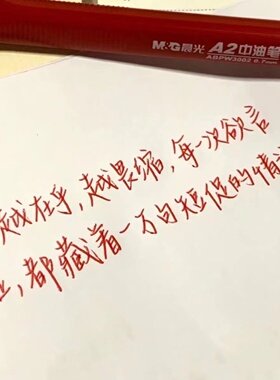 M&G晨光 A2中油笔
ABPW3002 0.7mm
越在乎,越畏缩,每一次欲言
,都藏着一万句短促的情